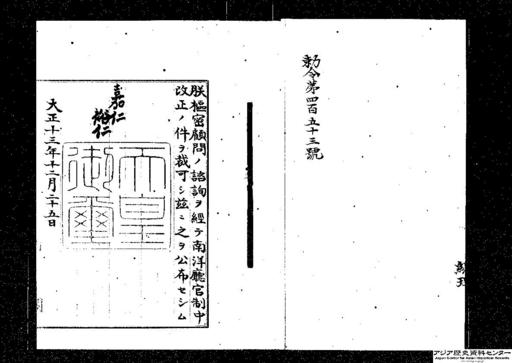 勅令第四百五十三號
朕樞密顧問ノ諮詢ヲ經テ南洋廳官制中
改正ノ件ヲ裁可シ茲ニ之ヲ公布セシム
嘉仁
裕仁
天皇
御璽
大正十三年十二月二十五日
アジア歴史資料センター
Japan Center for Asian Historical Records